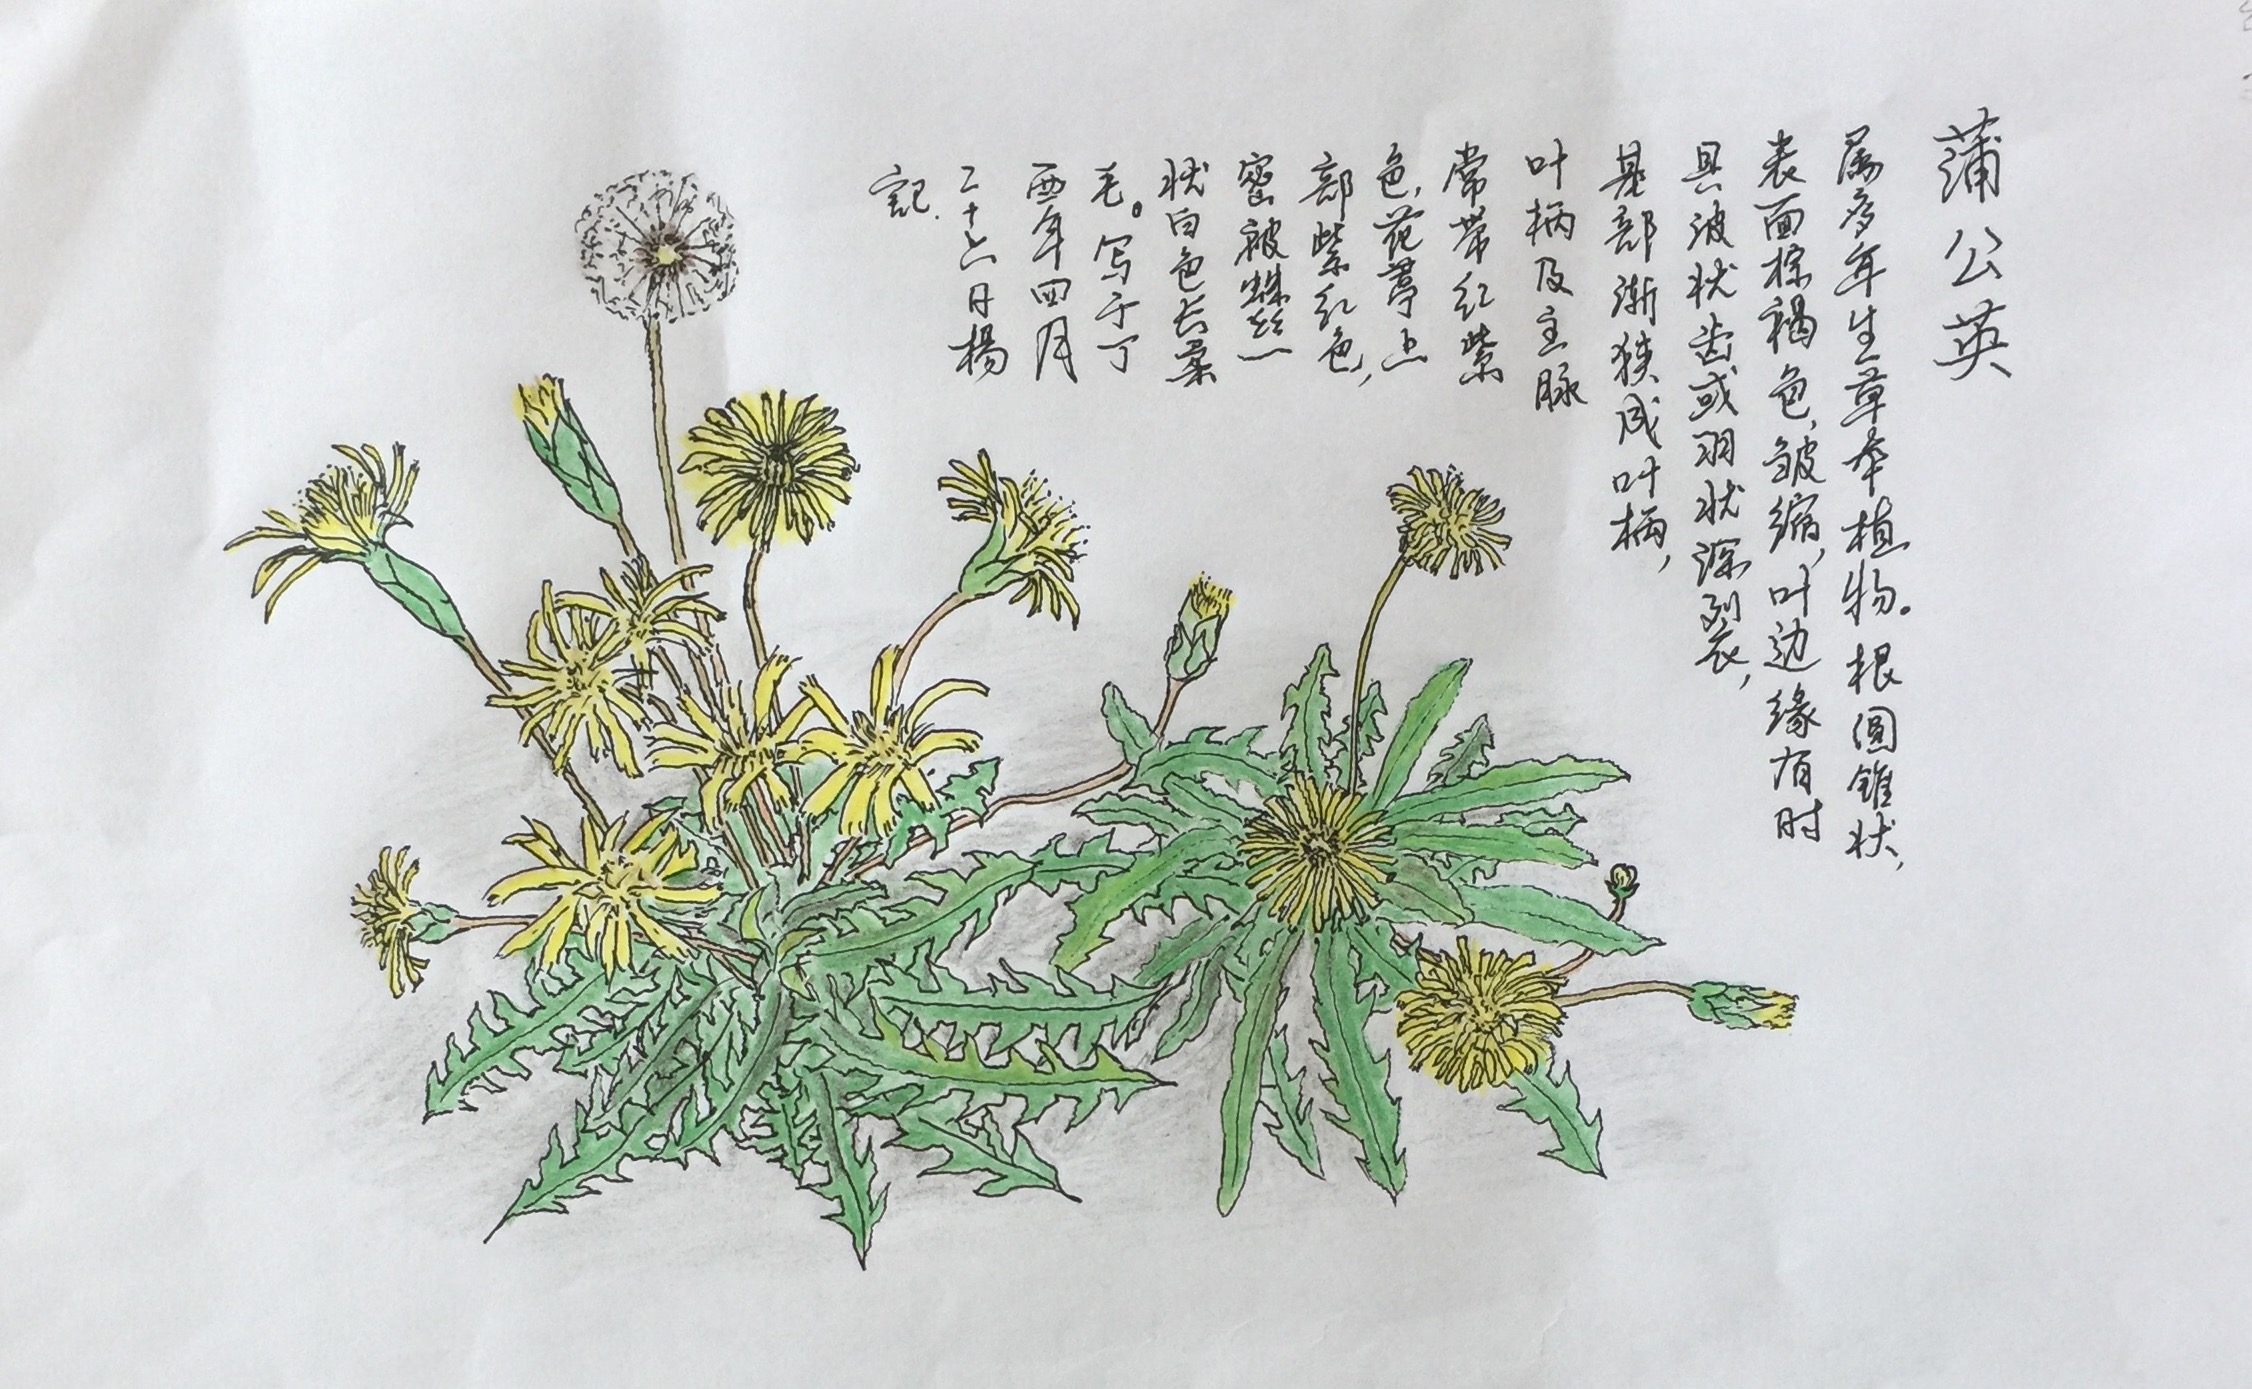 蒲公英
属多年生草本植物。根圆锥状,
表面棕褐色,皱缩,叶边缘有时
具波状齿或羽状深裂,
基部渐狭成叶柄,
叶柄及主脉
常带红紫
色,花葶上
部紫红色,
密被蛛丝
状白色长柔
毛。写于丁
酉年四月
二十六日楊
記.